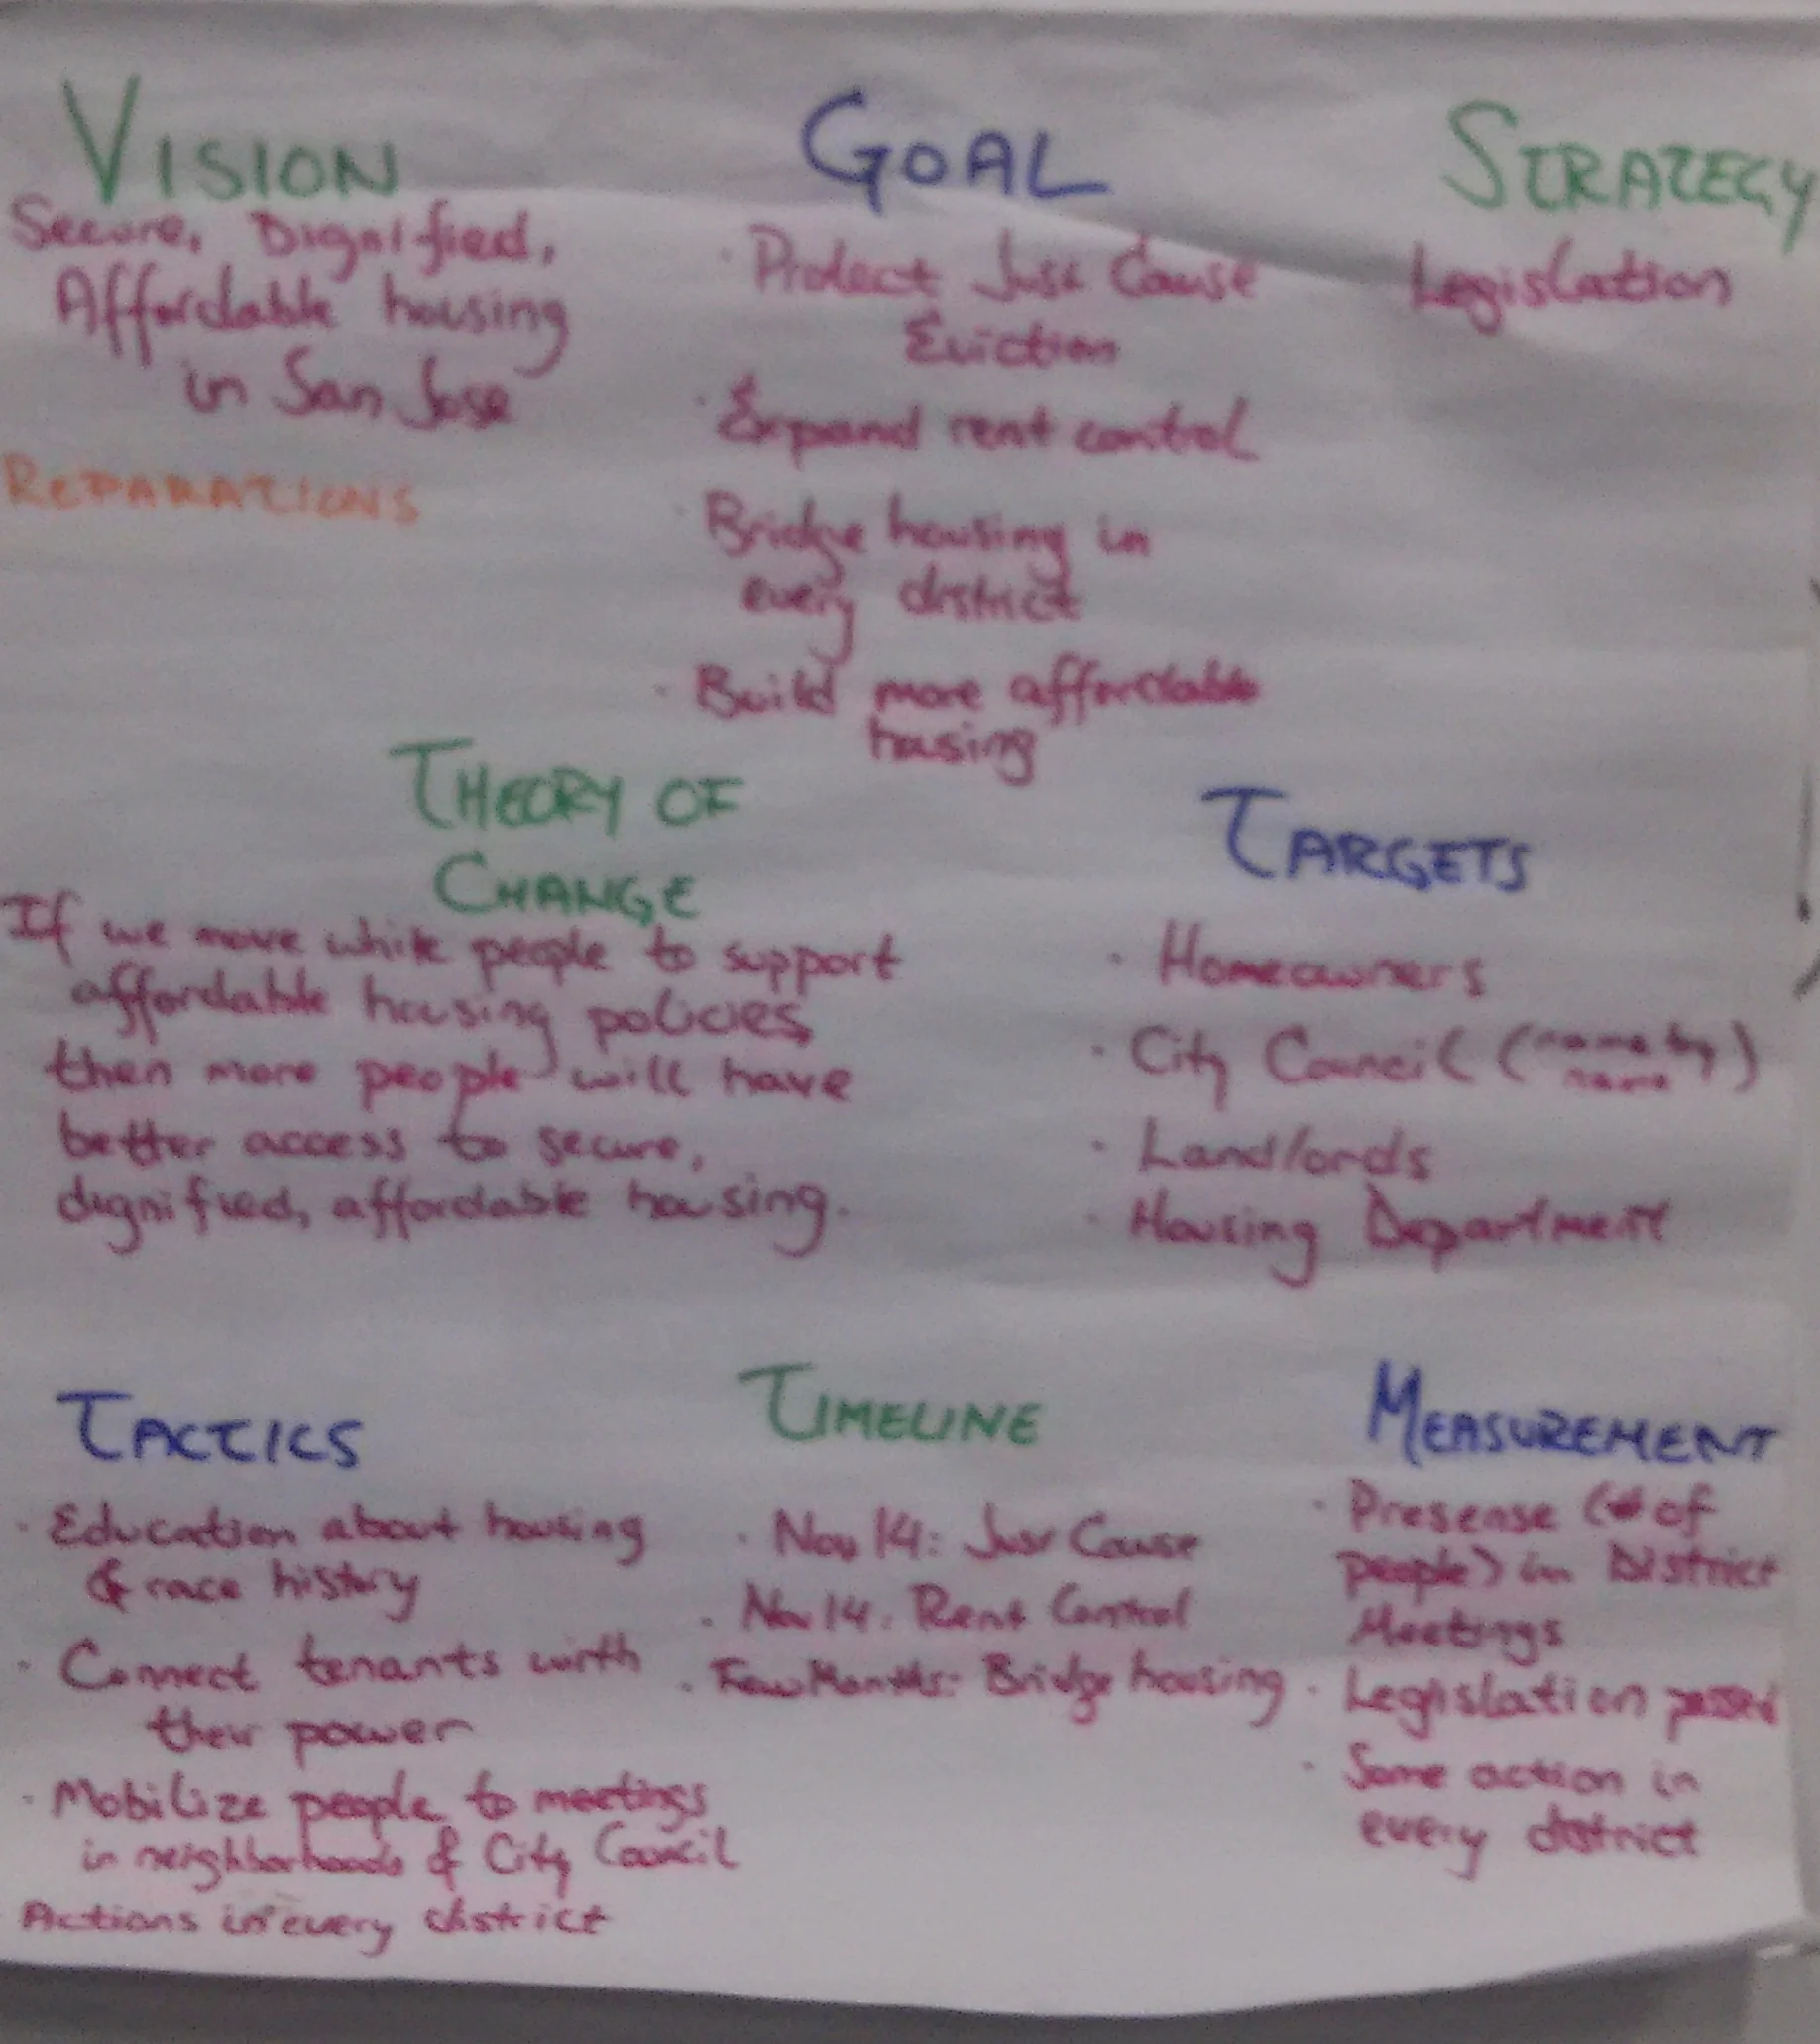 VISION
Secure, Dignified,
Affordable housing
in San Jose
REPARATIONS
GOAL
· Protect Just Cause
Eviction
· Expand rent control
· Bridge housing in
every district
· Build more affordable
housing
STRATEGY
Legislation
THEORY OF
CHANGE
If we move white people to support
affordable housing policies
then more people will have
better access to secure,
dignified, affordable housing.
TARGETS
· Homeowners
· City Council (name by
name)
· Landlords
· Housing Department
TACTICS
· Education about housing
& race history
· Connect tenants with
their power
· Mobilize people to meetings
in neighborhoods & City Council
Actions in every district
TIMELINE
· Nov 14: Just Cause
· Nov 14: Rent Control
· Few Months: Bridge housing
MEASUREMENT
· Presense (# of
people) in District
Meetings
· Legislation passed
· Some action in
every district